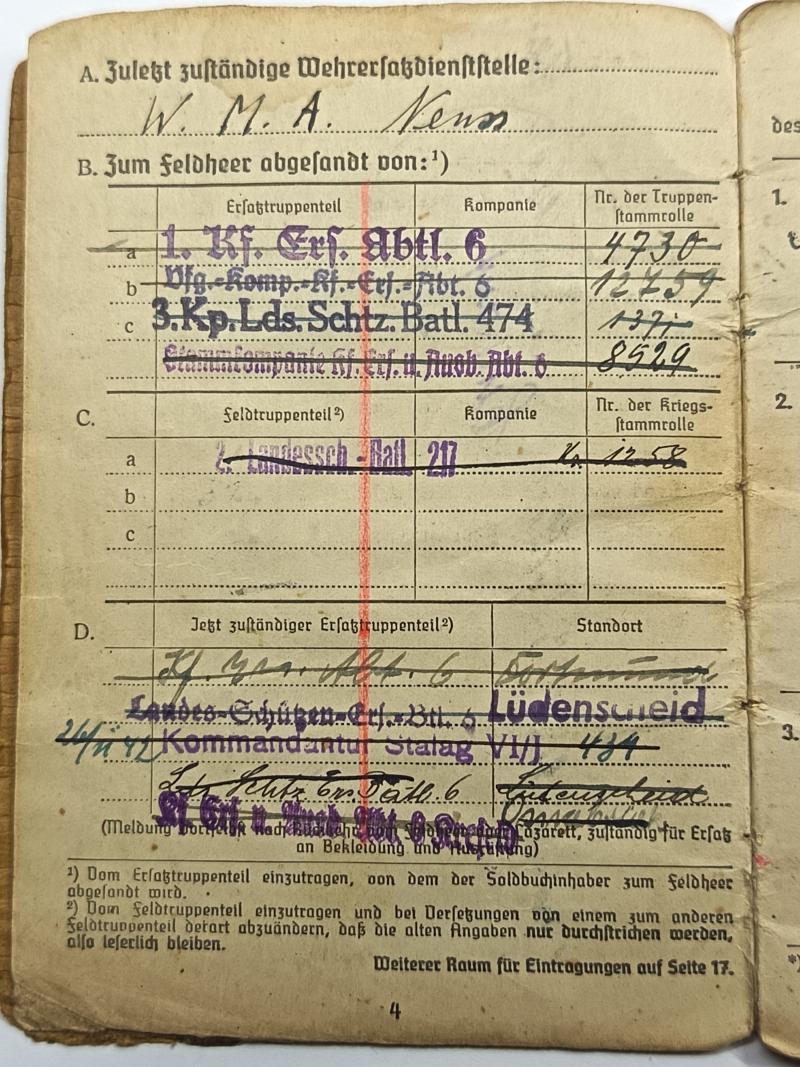 A. Zuletzt zuständige Wehrersatzdienststelle:
W. M. A. Neuss
B. Zum Feldheer abgesandt von:¹)
Ersatztruppenteil Kompanie Nr. der Truppen-
stammrolle
a 1. Kf. Ers. Abtl. 6 4730
b Vfg.-Komp.-Kf.-Ers.-Abt. 6 12759
c 3. Kp. Lds. Schtz. Batl. 474
Stammkompanie Kf. Ers. u. Ausb. Abt. 6 8529
C. Feldtruppenteil²) Kompanie Nr. der Kriegs-
stammrolle
a 2. Landessch.-Batl. 217 1258
b
c
D. Jetzt zuständiger Ersatztruppenteil²) Standort
Kf. Ers. Abt. 6 Dortmund
Landes-Schützen-Ers.-Btl. 6 Lüdenscheid
Kommandantur Stalag VI/J
Lds Schtz Ers Batl. 6 Lüdenscheid
Kf. Ers. u. Ausb. Abt. 6
(Meldung dortselbst nach Rückkehr vom Feldheer oder Lazarett, zuständig für Ersatz
an Bekleidung und Ausrüstung)
¹) Vom Ersatztruppenteil einzutragen, von dem der Soldbuchinhaber zum Feldheer
abgesandt wird.
²) Vom Feldtruppenteil einzutragen und bei Versetzungen von einem zum anderen
Feldtruppenteil derart abzuändern, daß die alten Angaben nur durchstrichen werden,
also leserlich bleiben.
Weiterer Raum für Eintragungen auf Seite 17.
4
des
1.
2.
3.
*)